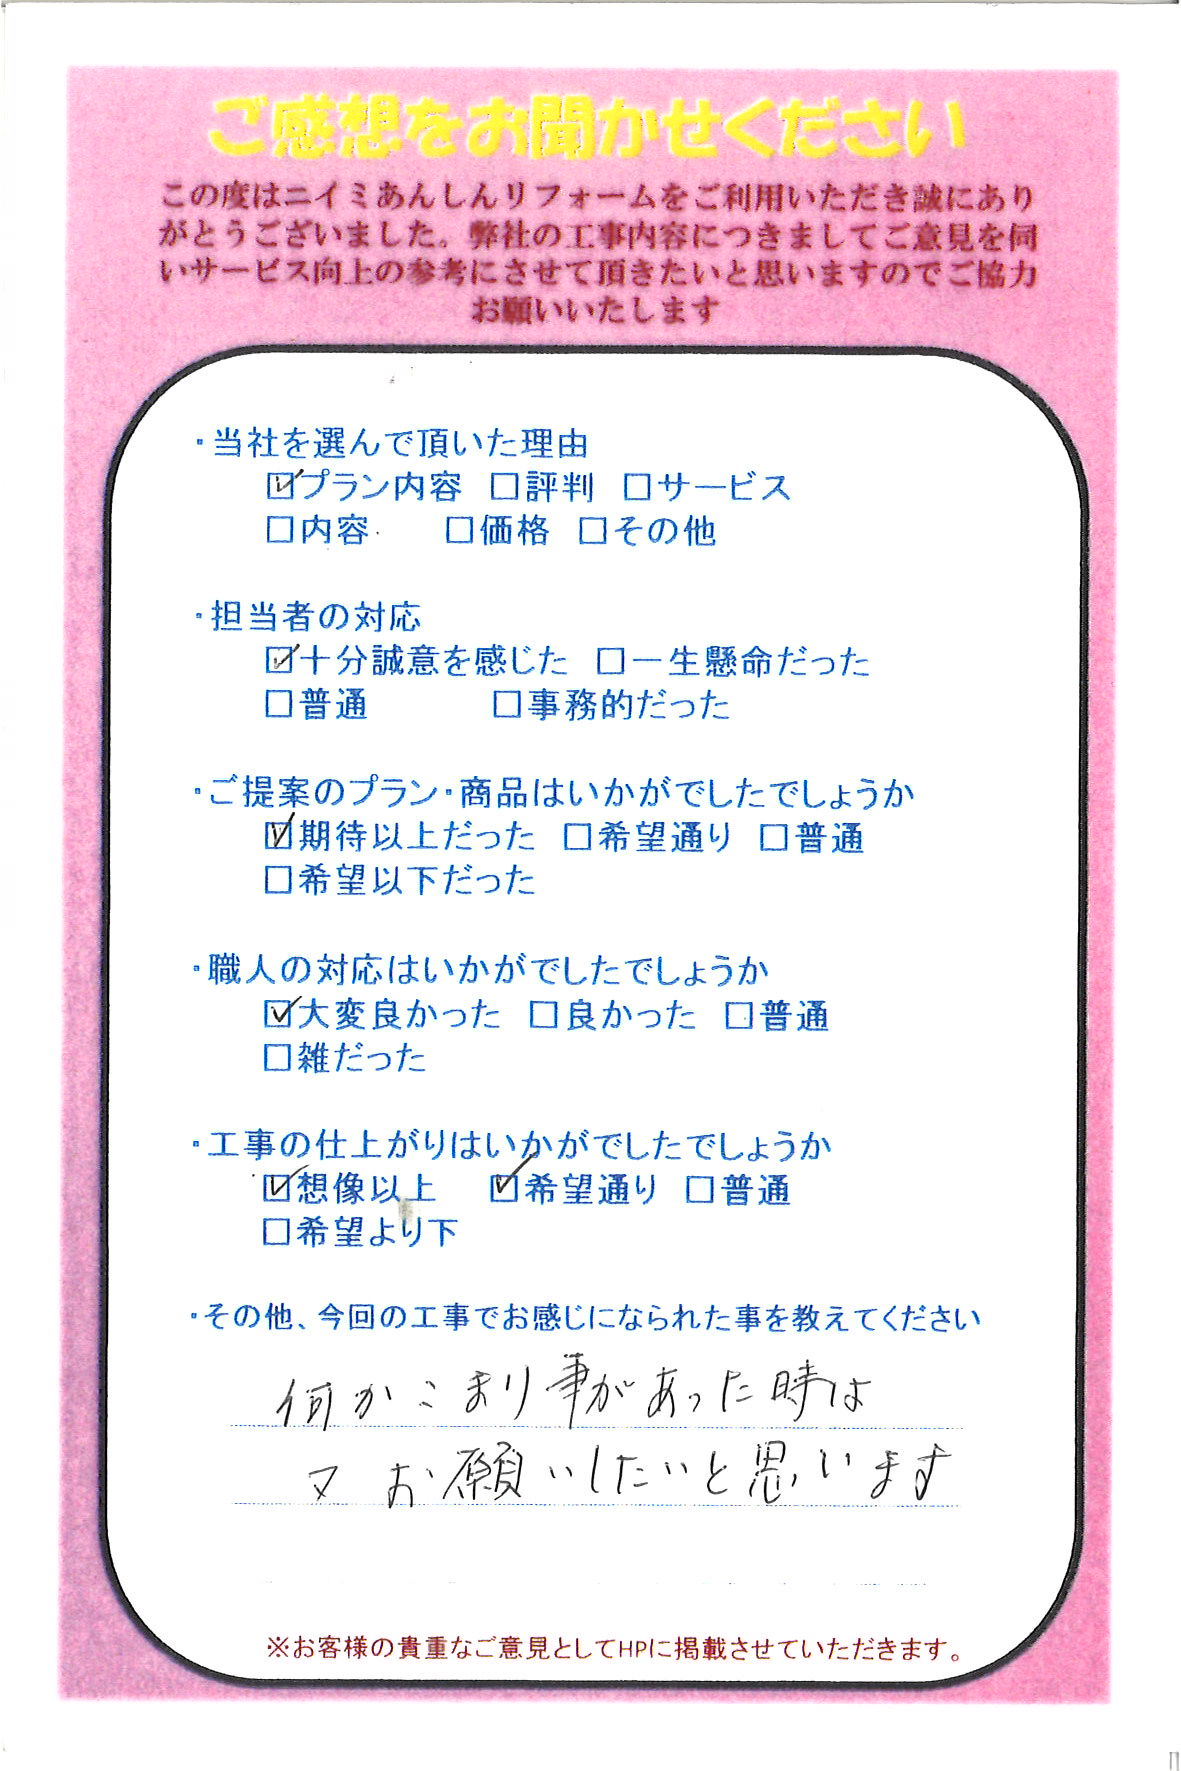 ご感想をお聞かせください
この度はニイミあんしんリフォームをご利用いただき誠にあり
がとうございました。弊社の工事内容につきましてご意見を伺
いサービス向上の参考にさせて頂きたいと思いますのでご協力
お願いいたします
・当社を選んで頂いた理由
☑プラン内容 □評判 □サービス
□内容 □価格 □その他
・担当者の対応
☑十分誠意を感じた □一生懸命だった
□普通 □事務的だった
・ご提案のプラン・商品はいかがでしたでしょうか
☑期待以上だった □希望通り □普通
□希望以下だった
・職人の対応はいかがでしたでしょうか
☑大変良かった □良かった □普通
□雑だった
・工事の仕上がりはいかがでしたでしょうか
☑想像以上 ☑希望通り □普通
□希望より下
・その他、今回の工事でお感じになられた事を教えてください
何かこまり事があった時は
又お願いしたいと思います
※お客様の貴重なご意見としてHPに掲載させていただきます。